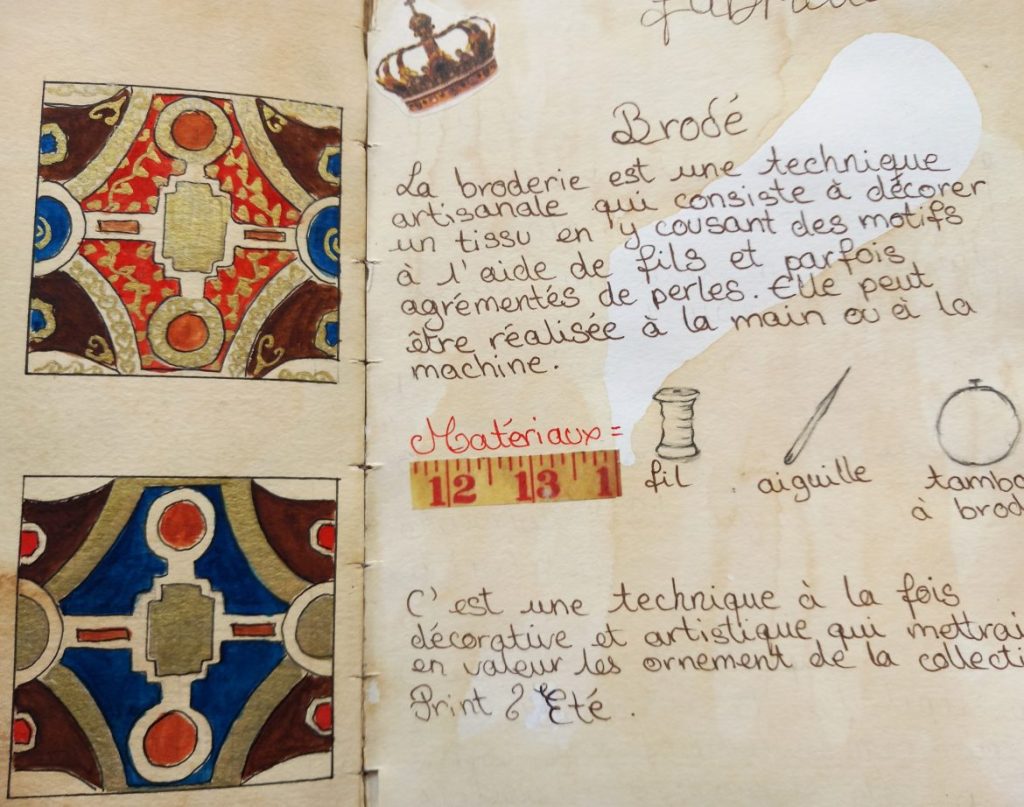 Brodé
La broderie est une technique
artisanale qui consiste à décorer
un tissu en y cousant des motifs
à l'aide de fils et parfois
agrémentés de perles. Elle peut
être réalisée à la main ou à la
machine.
Matériaux =
12 13 1
fil aiguille tambo
à brod
C'est une technique à la fois
décorative et artistique qui mettrai
en valeur les ornement de la collecti
Print Eté.